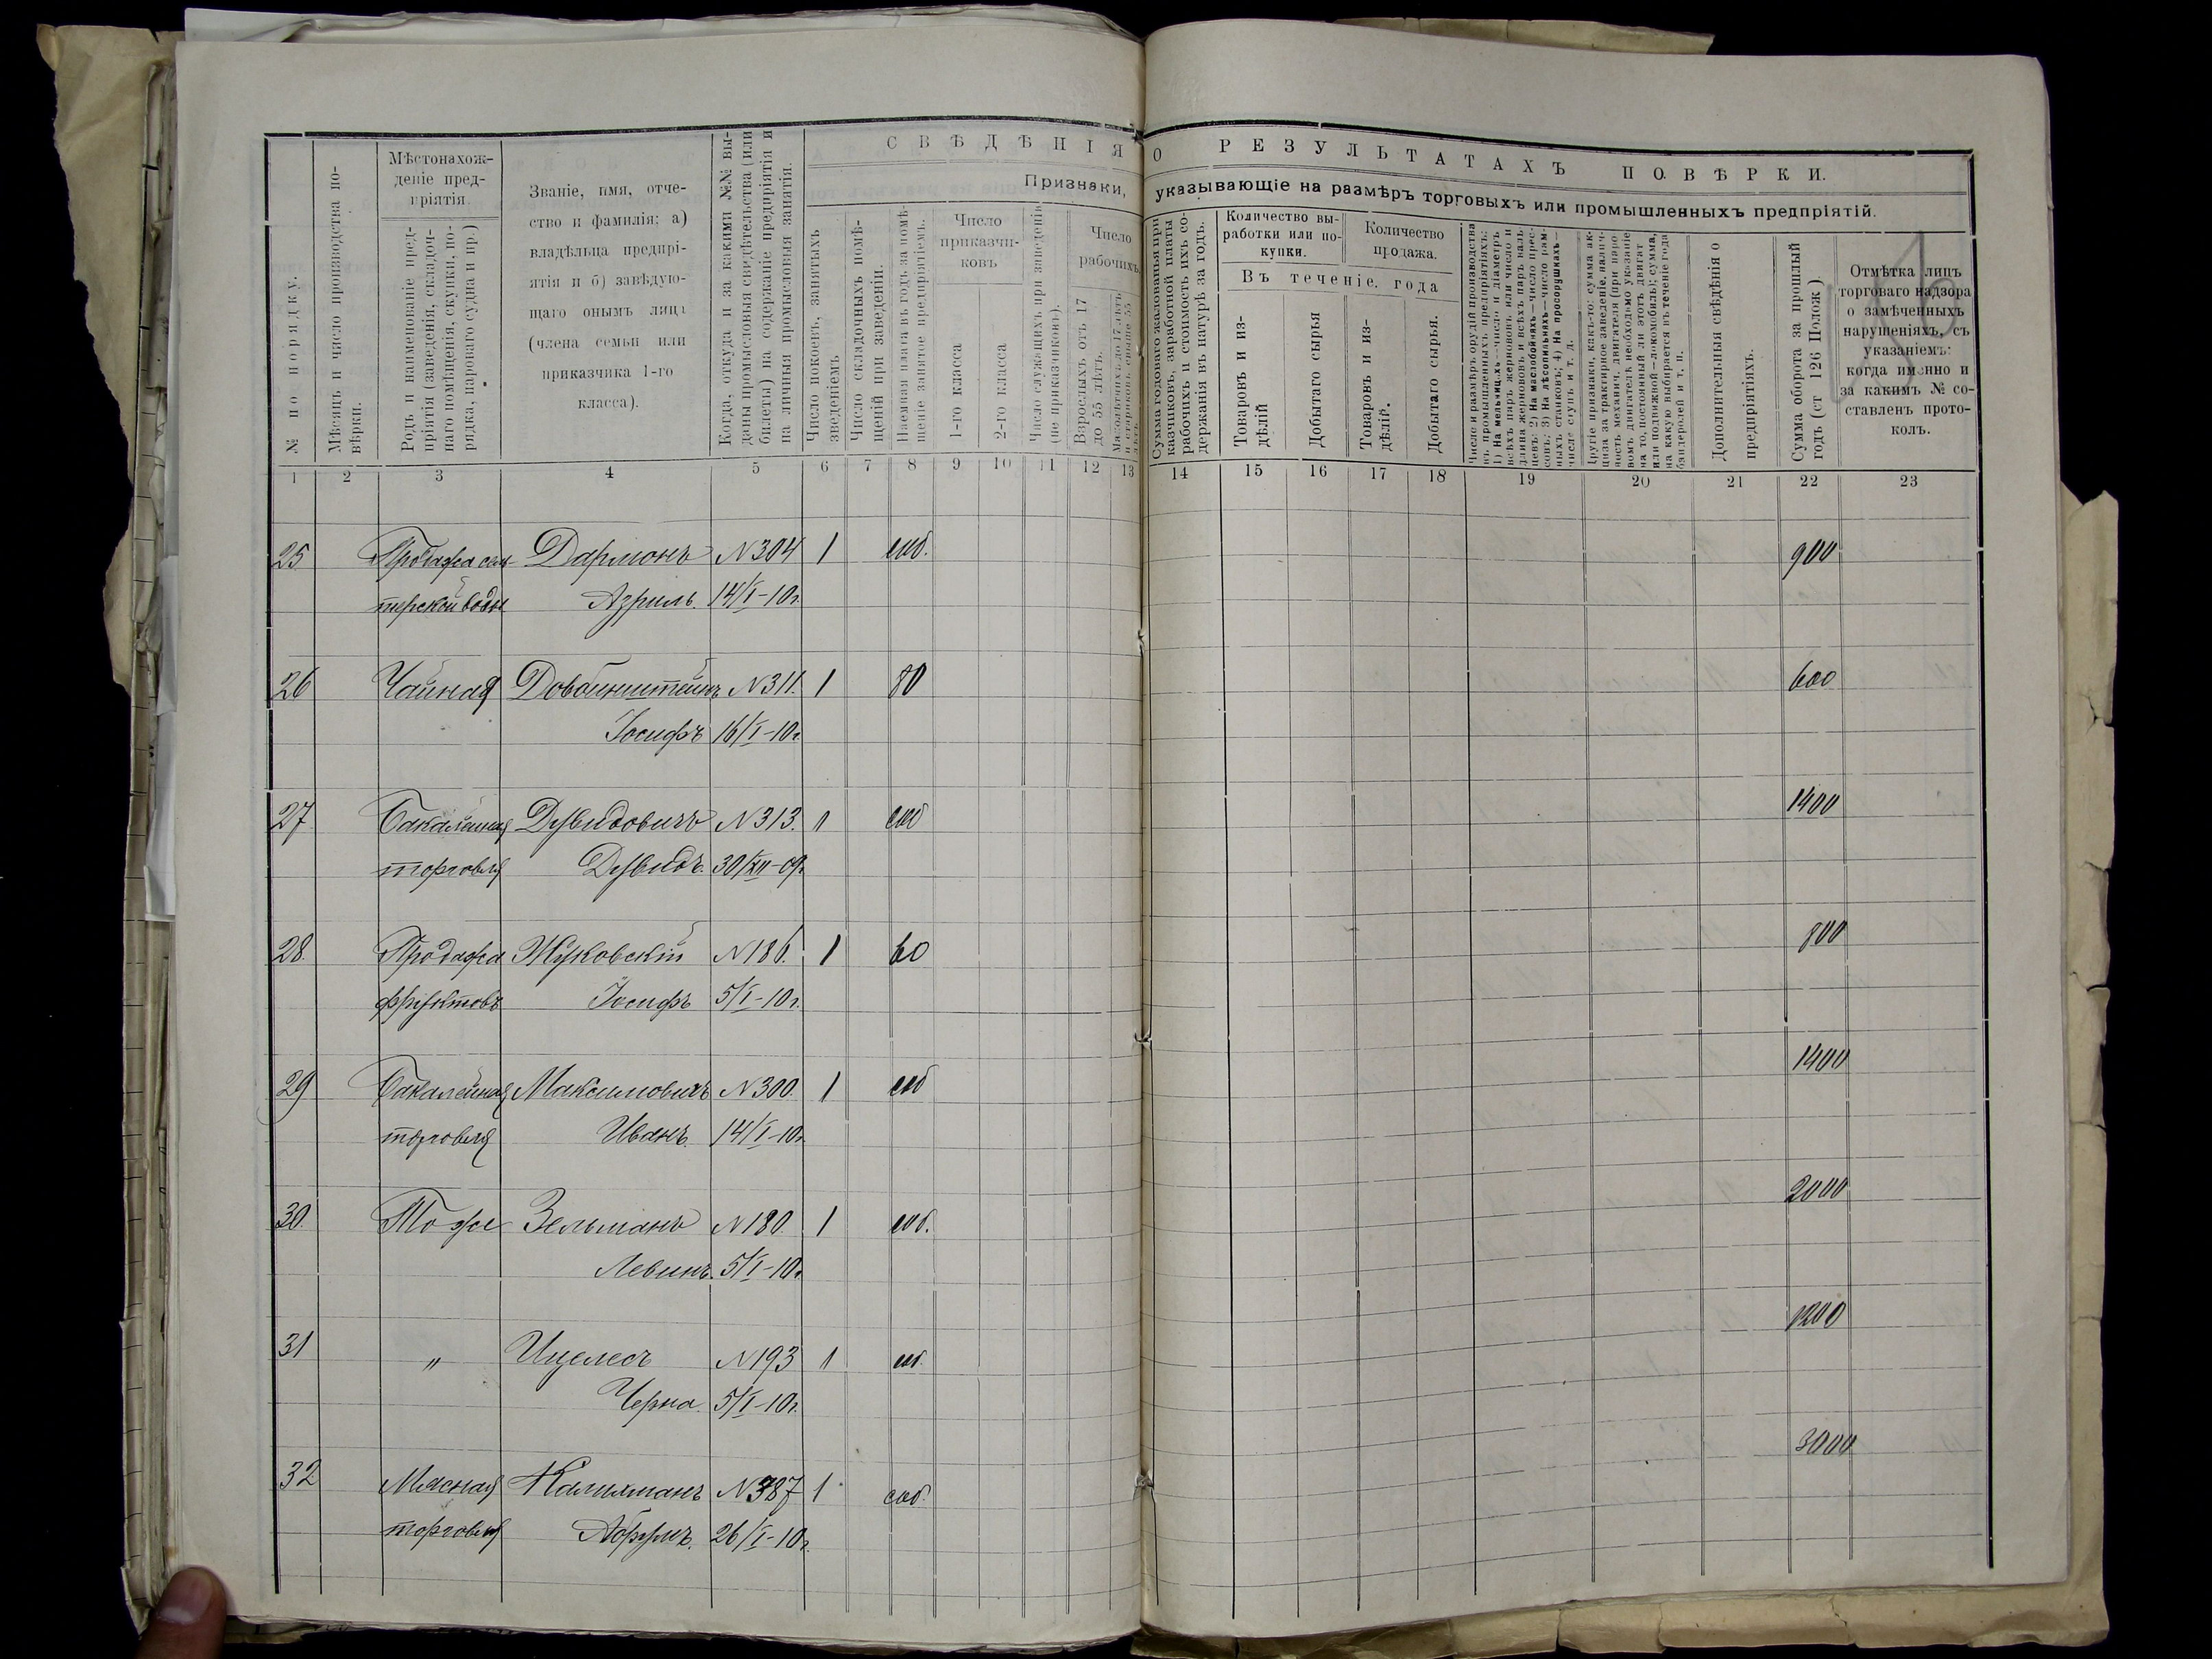 СВѢДѢНІЯ О РЕЗУЛЬТАТАХЪ ПОВѢРКИ.
Признаки, указывающіе на размѣръ торговыхъ или промышленныхъ предпріятій.
№ по порядку.
Мѣсяцъ и число производства по-
вѣрки.
Мѣстонахож-
деніе пред-
пріятія
Родъ и наименованіе пред-
пріятія (заведенія, складоч-
наго помѣщенія, скупки, по-
рядка, пароваго судна и пр.)
Званіе, имя, отче-
ство и фамилія: а)
владѣльца предпрі-
ятія и б) завѣдую-
щаго онымъ лица
(члена семьи или
приказчика 1-го
класса).
Когда, откуда и за какими №№ вы-
даны промысловыя свидѣтельства (или
билеты) на содержаніе предпріятія и
на личныя промысловыя занятія.
Число покоевъ, занятыхъ
зведеніемъ
Число складочныхъ помѣ-
щеній при заведеніи.
Наемная плата въ годъ за помѣ-
щеніе занятое предпріятіемъ.
Число
приказчи-
ковъ
1-го класса
2-го класса
Число служащихъ при заведеніи
(не приказчиковъ).
Число
рабочихъ
Взрослыхъ отъ 17
до 55 лѣтъ.
Малолѣтнихъ до 17 лѣтъ
и стариковъ свыше 55
Сумма годоваго жалованья при-
казчиковъ, заработной платы
рабочихъ и стоимость ихъ со-
держанія въ натурѣ за годъ.
Количество вы-
работки или по-
купки.
Количество
продажа.
Въ теченіе. года
Товаровъ и из-
дѣлій
Добытаго сырья
Товаровъ и из-
дѣлій.
Добытаго сырья.
Число и размѣръ орудій производства
въ промышленныхъ предпріятіяхъ:
1) На мельницахъ—число и діаметръ
всѣхъ паръ жернововъ или число и
длина жернововъ и всѣхъ паръ валь-
цевъ: 2) На маслобойняхъ—число прес-
совъ; 3) На лѣсопильняхъ—число рам-
ныхъ станковъ; 4) На просорушкахъ—
число ступъ и т. д.
Другіе признаки, какъ-то: сумма ак-
циза за трактирное заведеніе, налич-
ность механич. двигателя (при паро-
вомъ двигателѣ необходимо указаніе
на то, постоянный ли этотъ двигат
или подвижной—локомобиль); сумма,
на какую выбирается въ теченіе года
бандеролей и т. п.
Дополнительныя свѣдѣнія о
предпріятіяхъ.
Сумма оборота за прошлый
годъ (ст 126 Полож)
Отмѣтка лицъ
торговаго надзора
о замѣченныхъ
нарушеніяхъ, съ
указаніемъ:
когда именно и
за какимъ № со-
ставленъ прото-
колъ.
1 2 3 4 5 6 7 8 9 10 11 12 13 14 15 16 17 18 19 20 21 22 23
25 Продажа сель- Дармонъ N304 1 соб. 900
терской воды Азриль. 14/I-10г.
26 Чайная Довбинштейнъ N311. 1 80 600
Іосифъ 16/I-10г.
27 Бакалейная Дувидовичъ N313. 1 соб 1400
торговля Дувидъ. 30/XII-09г.
28. Продажа Жуковскій N186. 1 60 800
фруктовъ Іосифъ 5/I-10г.
29 Бакалейная Максимовичъ N300. 1 соб 1400
торговля Иванъ. 14/I-10г.
30. То же Зельманъ N180. 1 соб. 2000
Левинъ. 5/I-10г.
31 " Ицелесъ N193 1 соб. 1200
Черна. 5/I-10г.
32 Мясная Калихманъ N387 1 соб. 3000
торговля Абрумъ. 26/I-10г.